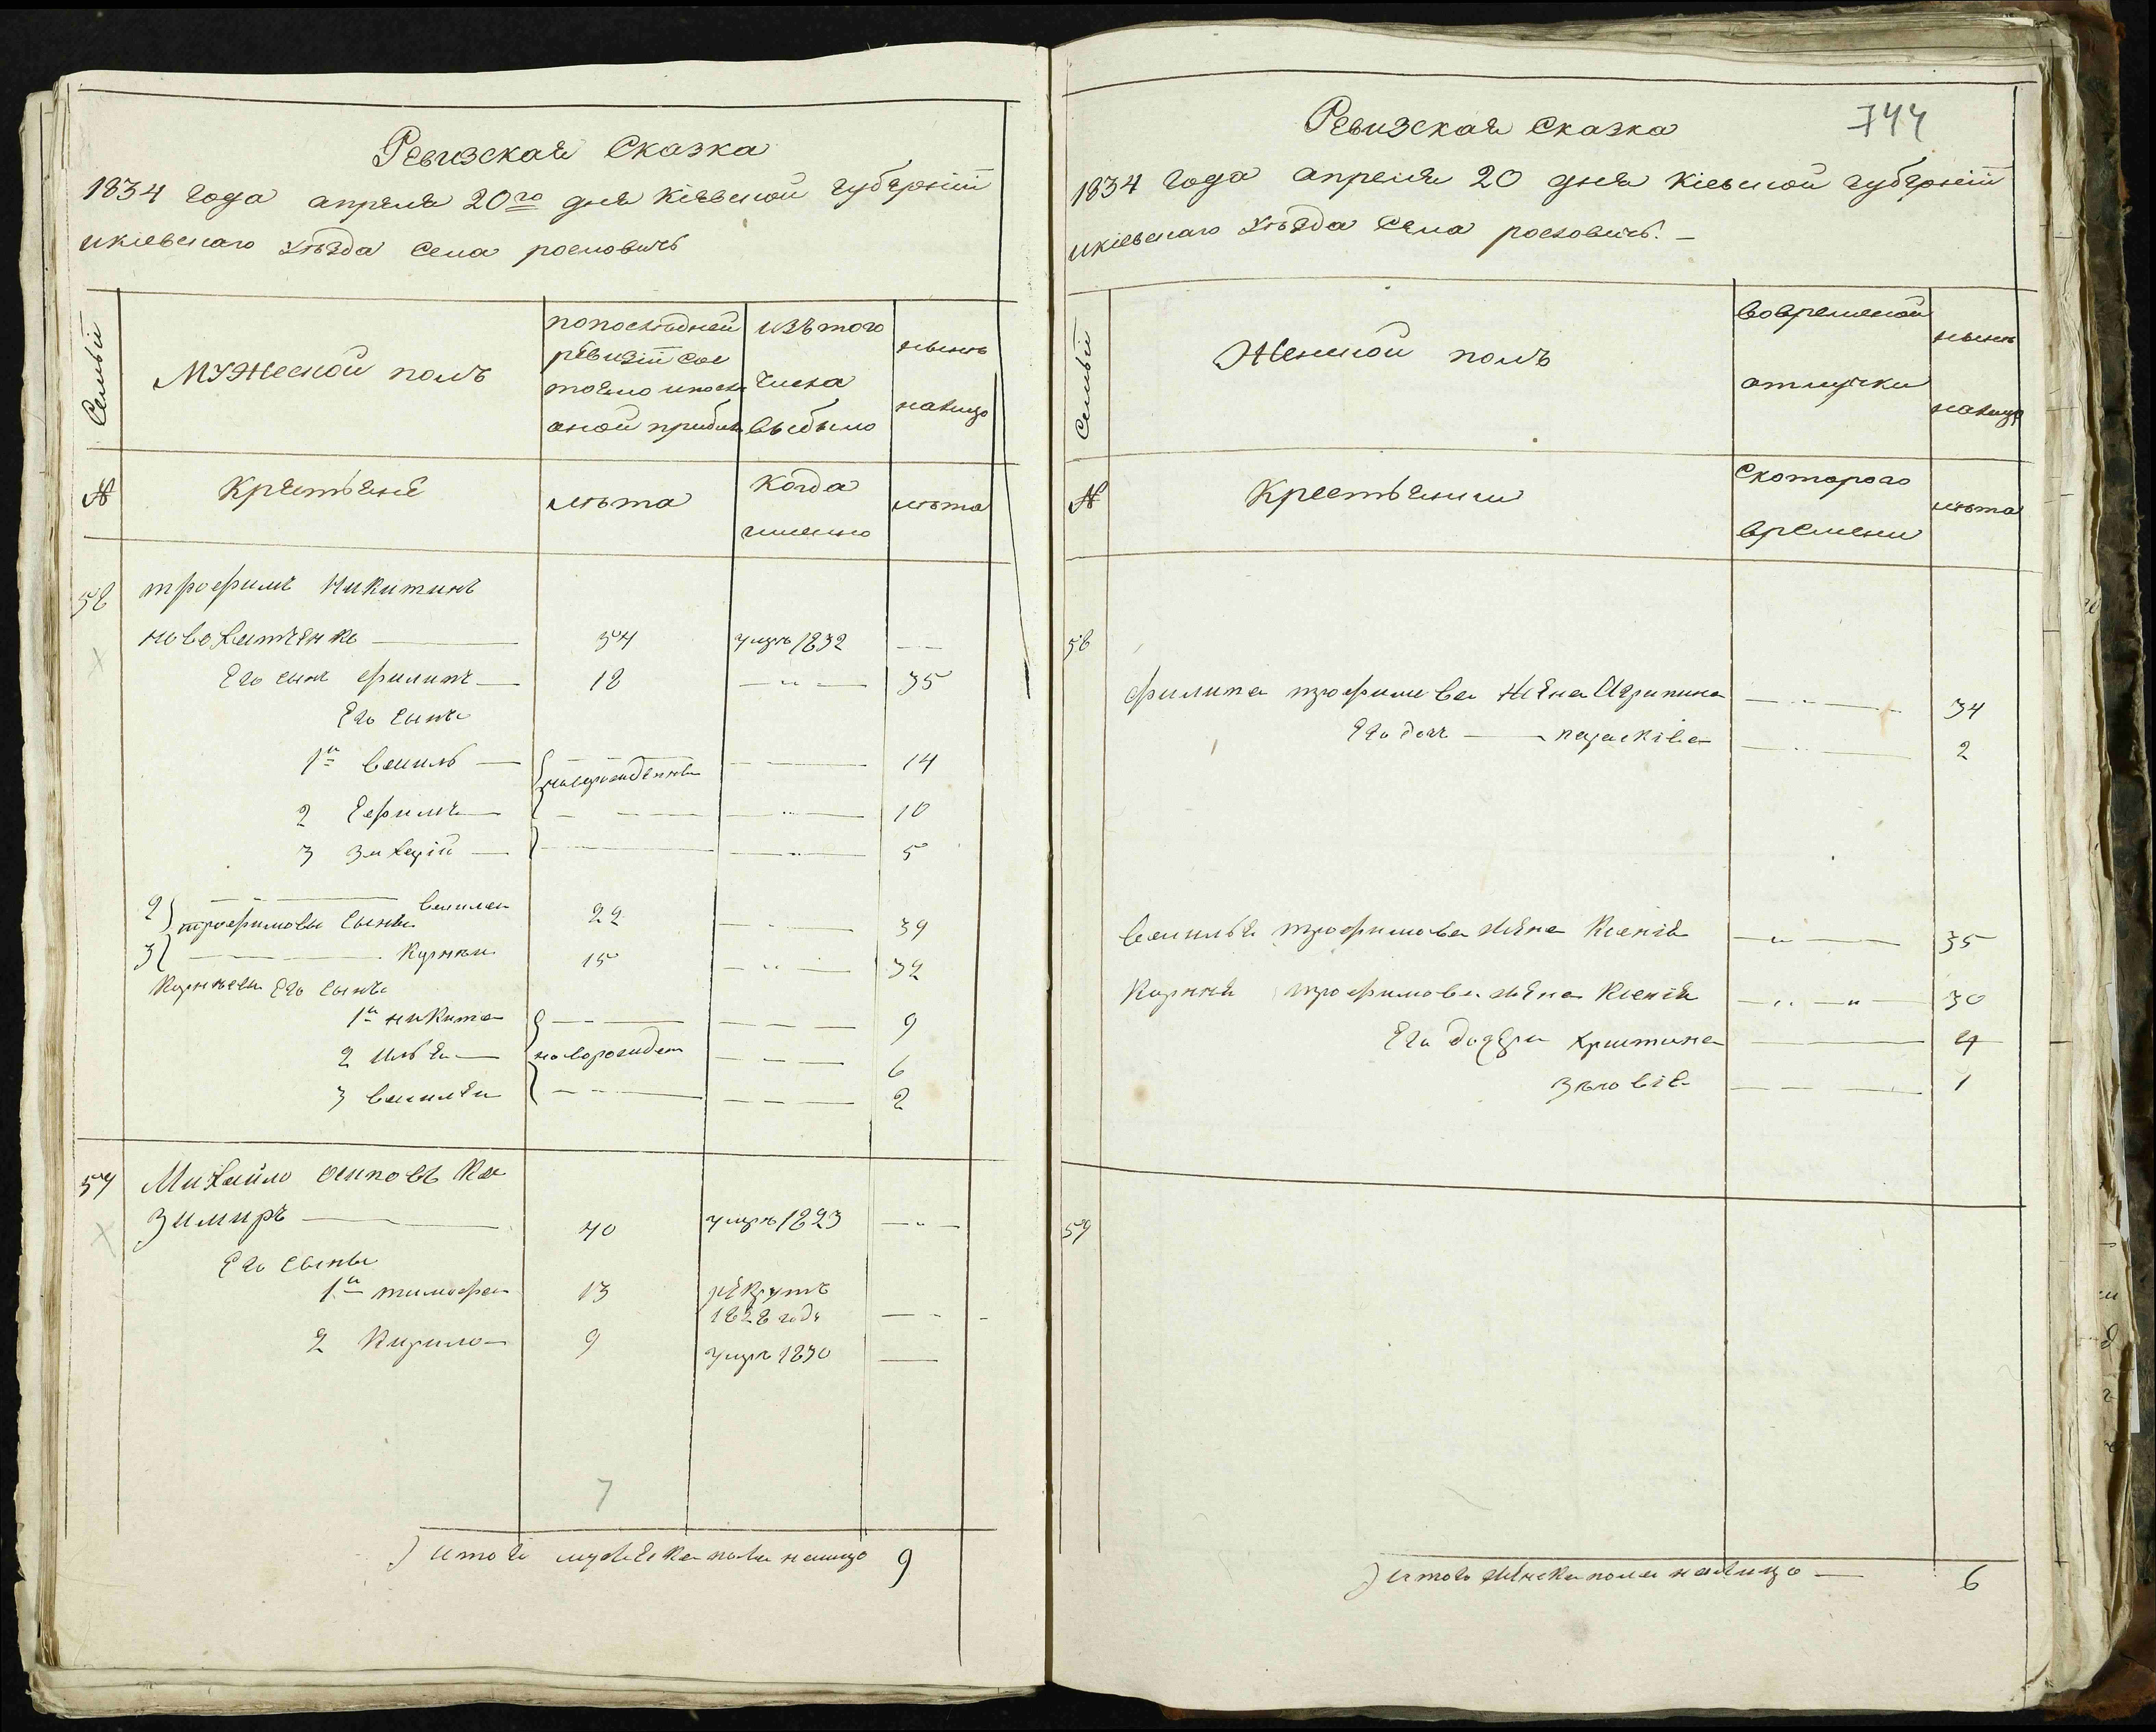 Ревизская Сказка
1834 года апреля 20го дня Кіевской губерніи
икіевскаго уѣзда Села рословичъ
Семьи
Мужеской полъ
попослѣдней
ревизіи сос
тояло ипосл
оной прибы
изътого
числа
выбыло
нынѣ
налицо
№
Крестьяне
лѣта
Когда
именно
лѣта
58
трофимъ Никитинъ
новохатченко
54
умръ 1832
Его сынъ филипъ
18
35
Его сыны
1й василь
новорожденны
14
2 Ефимъ
10
3 захарій
5
2) трофимовы сыны василей
22
39
3) Корнѣй
15
32
Корнѣевы Его сыны
1й никита
9
2 илья
новорожден
6
3 василей
2
59
Михайло осиповъ Ка
зимиръ
40
умръ 1823
Его сыны
1й тимофей
13
рекрутъ
1828 годѣ
2 Кирило
9
умръ 1830
7
итого мужеска пола налицо 9
Ревизская Сказка
744
1834 года апреля 20 дня Кіевской губерніи
икіевскаго уѣзда Села росховичъ.
Семьи
Женской полъ
вовременной
отлучки
нынѣ
налицо
№
Крестьянки
Скоторого
времени
лѣта
58
филипа трофимова жена Агрипина
34
Его доч парасківа
2
василья трофимова жена Ксенія
35
Корнѣя трофимова жена Ксенія
30
Его дочери христина
4
зѣновія
1
59
итого женска пола налицо
6